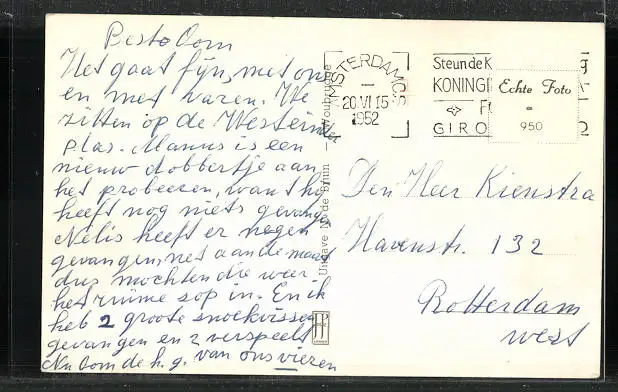 Beste Oom
Het gaat fijn, met ons
en met varen. We
zitten op de Westeinder
plas. Manus is een
nieuw dobbertje aan
het proberen, want hij
heeft nog niets gevangen
Nelis heeft er negen
gevangen, net aan de maat
dus mochten die weer
het ruime sop in. En ik
heb 2 groote snoekvissen
gevangen en 2 verspeelt
Nu Oom de h.g. van ons vieren
Uitgave No de Bruin - Woubrugge
AMSTERDAM C.S.
20 VI 15
1952
Steun de K
KONING
F
GIRO
Echte Foto
-
950
Den Heer Kienstra
Havenstr. 132
Rotterdam
west